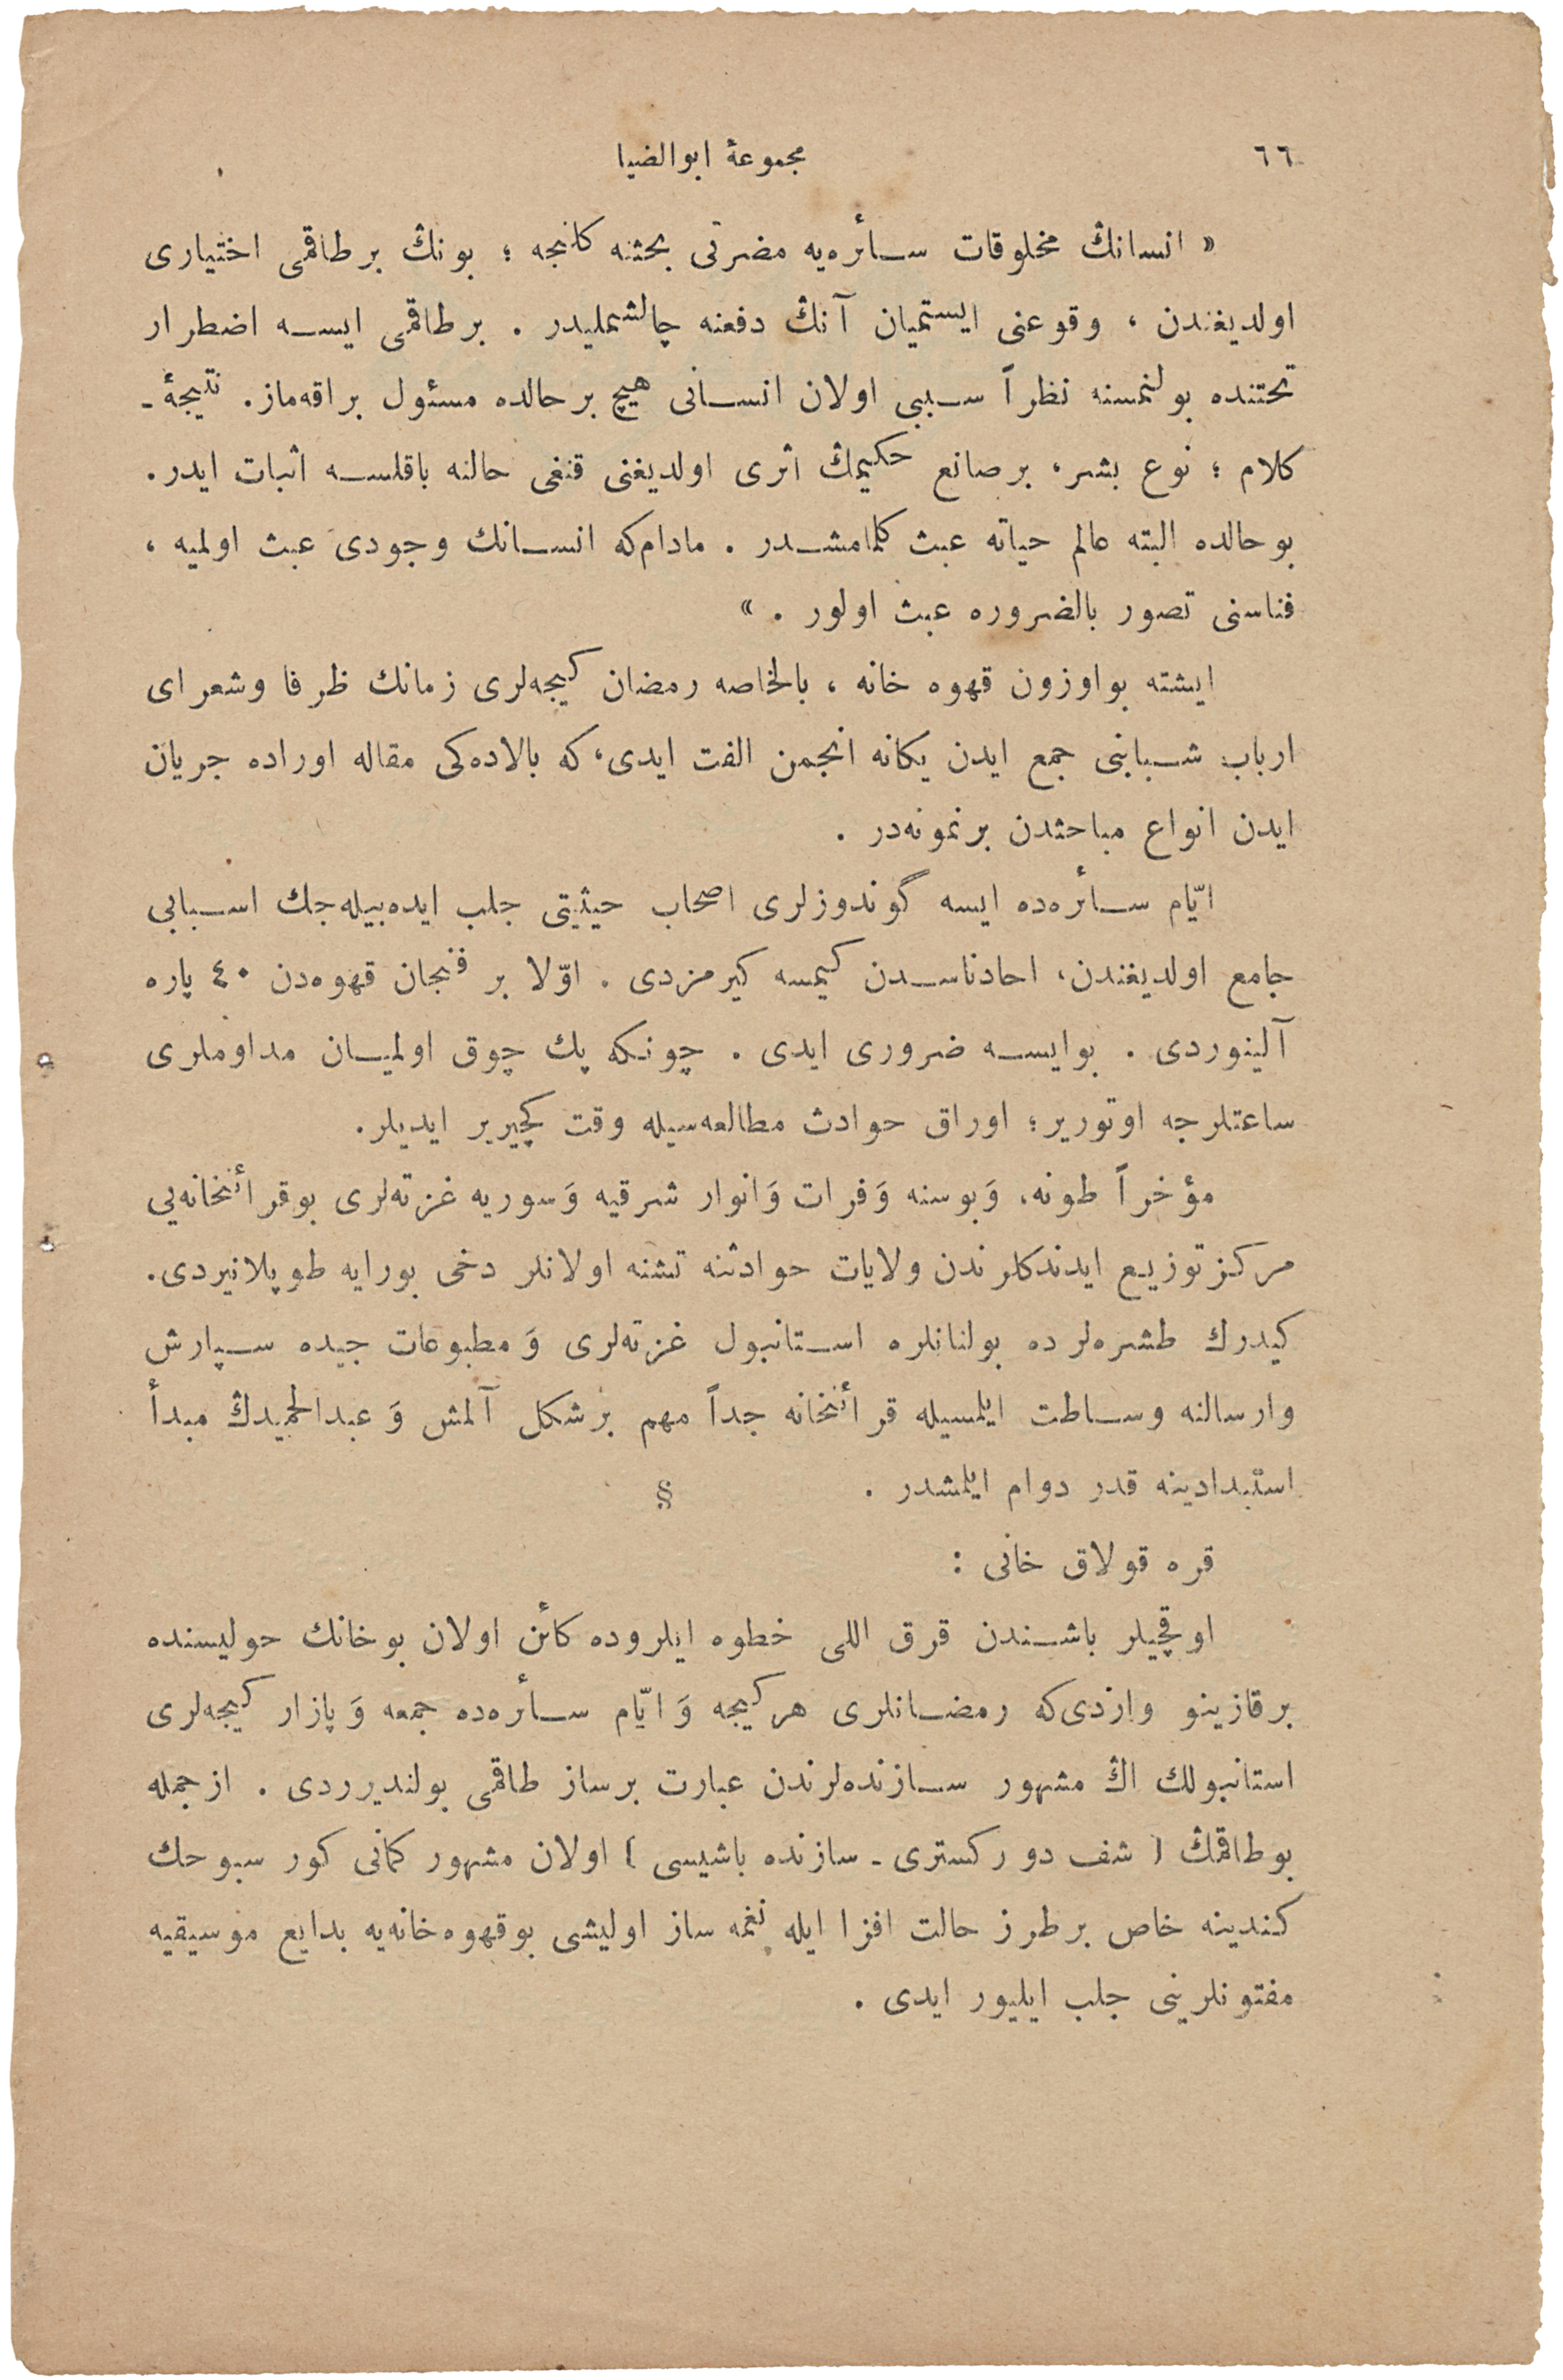 ٦٦
مجموعۀ ابوالضیا
« انسانڭ مخلوقات سائره‌یه مضرتی بحثنه کلنجه ؛ بونڭ بر طاقمی اختیاری
اولدیغندن ، وقوعنی ایستمیان آنڭ دفعنه چالشملیدر . بر طاقمی ایسه اضطرار
تحتنده بولنمسنه نظراً سببی اولان انسانی هیچ بر حالده مسئول براقه‌ماز. نتیجۀ ـ
کلام ؛ نوع بشر، بر صانع حکیمڭ اثری اولدیغنی قنغی حالنه باقلسه اثبات ایدر.
بو حالده البته عالم حیاته عبث کلمامشدر . مادام‌که انسانك وجودی عبث اولمیه ،
فناسنی تصور بالضروره عبث اولور . »
ایشته بو اوزون قهوه خانه ، بالخاصه رمضان کیجه‌لری زمانك ظرفا وشعرای
ارباب شبابنی جمع ایدن یکانه انجمن الفت ایدی، که بالاده‌کی مقاله اوراده جریان
ایدن انواع مباحثدن بر نمونه‌در .
ایّام سائره‌ده ایسه گوندوزلری اصحاب حیثیتی جلب ایده‌بیله‌جك اسبابی
جامع اولدیغندن، احادناسدن کیمسه کیرمزدی . اوّلا بر فنجان قهوه‌دن ٤٠ پاره
آلینوردی . بو ایسه ضروری ایدی . چونکه پك چوق اولمیان مداوملری
ساعتلرجه اوتوریر؛ اوراق حوادث مطالعه‌سیله وقت کچیریر ایدیلر.
مؤخراً طونه، وَ بوسنه وَ فرات وَ انوار شرقیه وَ سوریه غزته‌لری بو قرائتخانه‌یی
مرکز توزیع ایدندکلرندن ولایات حوادثنه تشنه اولانلر دخی بورایه طوپلانیردی.
کیدرك طشره‌لرده بولنانلره استانبول غزته‌لری وَ مطبوعات جیده سپارش
وارسالنه وساطت ایلمسیله قرائتخانه جداً مهم بر شکل آلمش وَ عبدالحمیدڭ مبدأ
استبدادینه قدر دوام ایلمشدر .
§
قره قولاق خانی :
اوقچیلر باشندن قرق اللی خطوه ایلروده کائن اولان بو خانك حولیسنده
بر قازینو واردی‌که رمضانلری هر کیجه وَ ایّام سائره‌ده جمعه وَ پازار کیجه‌لری
استانبولك اڭ مشهور سازنده‌لرندن عبارت بر ساز طاقمی بولندیرردی . از جمله
بو طاقمڭ ( شف دورکستری ـ سازنده باشیسی ) اولان مشهور کمانی کور سبوحك
کندینه خاص بر طرز حالت افزا ایله نغمه ساز اولیشی بو قهوه‌خانه‌یه بدایع موسیقیه
مفتونلرینی جلب ایلیور ایدی .